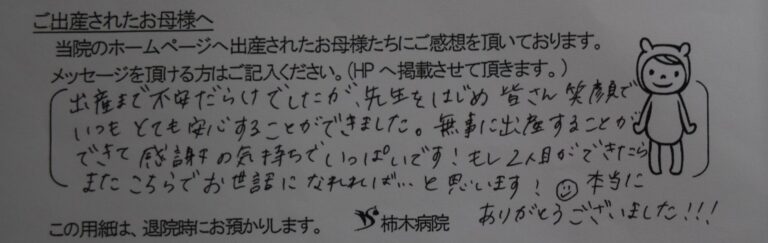 ご出産されたお母様へ
当院のホームページへ出産されたお母様たちにご感想を頂いております。
メッセージを頂ける方はご記入ください。(HPへ掲載させて頂きます。)
出産まで不安だらけでしたが、先生をはじめ皆さん笑顔で
いつもとても安心することができました。無事に出産することが
できて感謝の気持ちでいっぱいです！もし2人目ができたら
またこちらでお世話になれれば…と思います！本当に
ありがとうございました!!!
この用紙は、退院時にお預かりします。
柿木病院